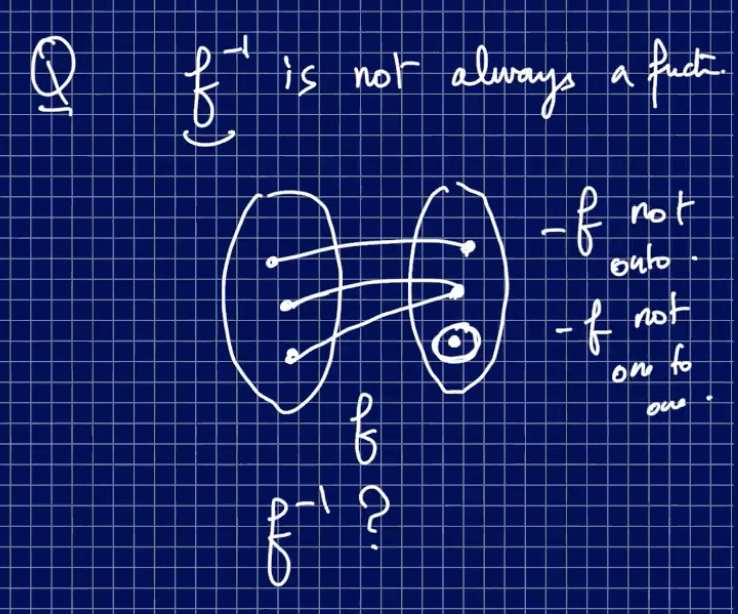 Q f⁻¹ is not always a fuctn.
- f not
onto.
- f not
one to
one.
f
f⁻¹ ?